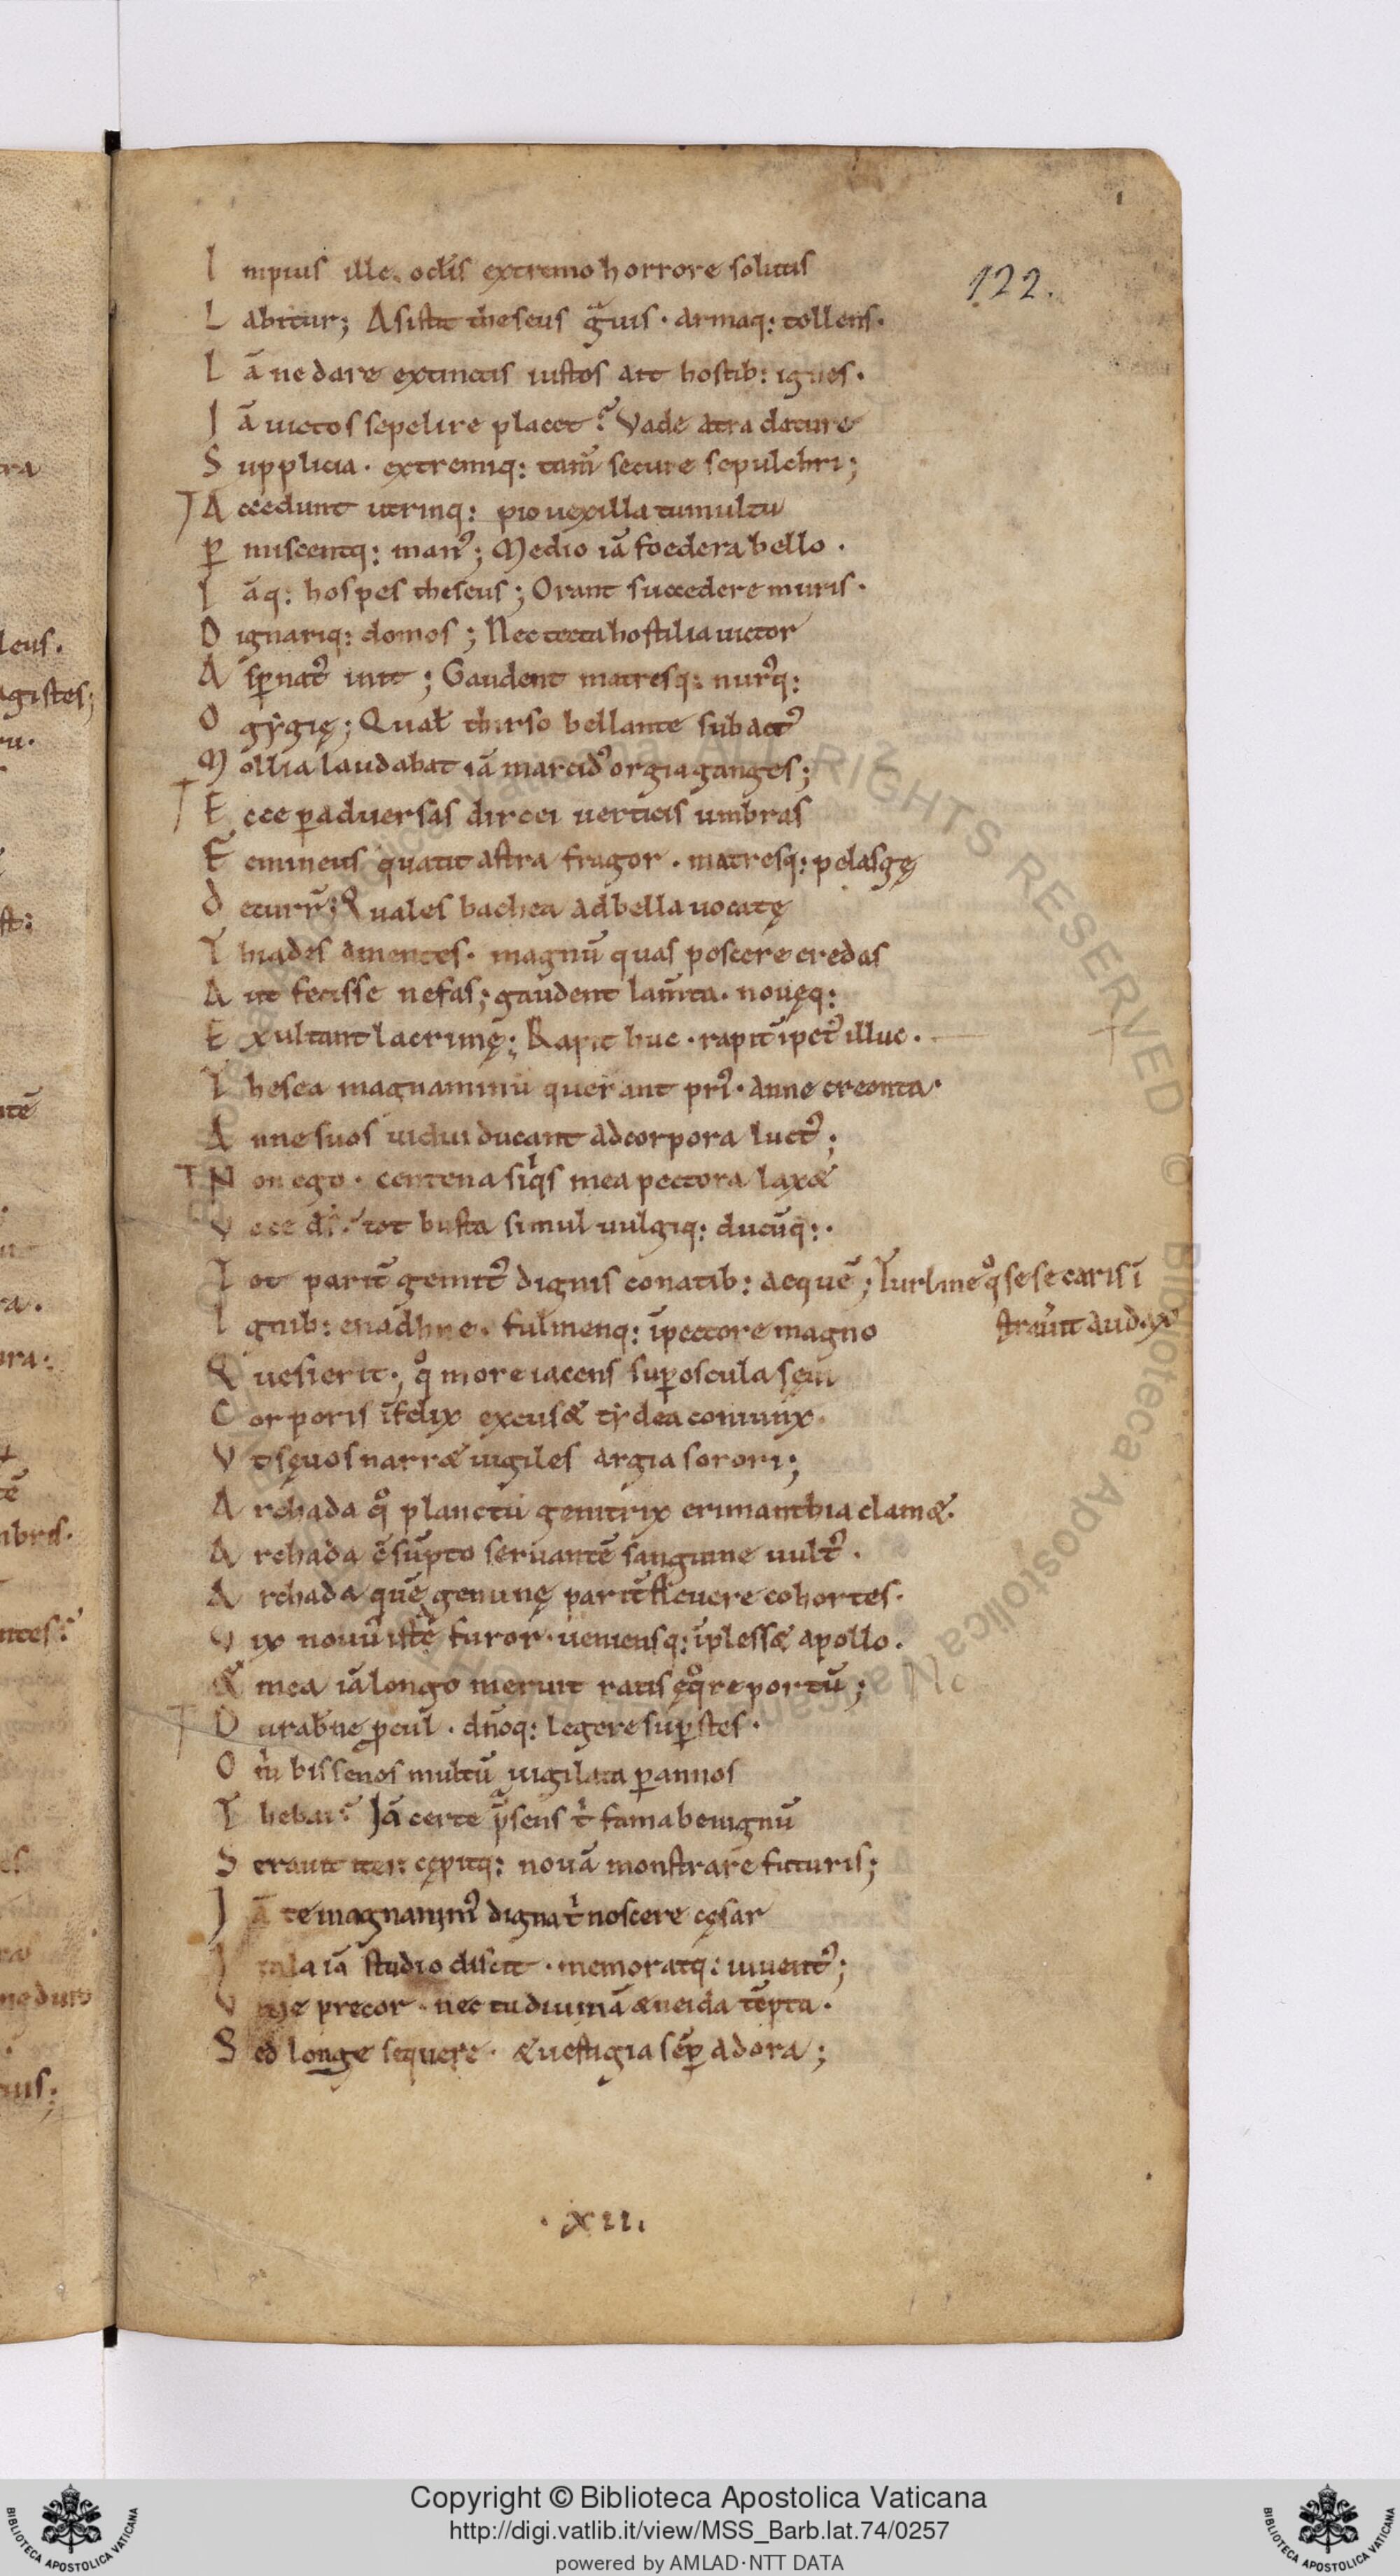 122.
I mpius ille. oclis extremo horrore solutis
L abitur; Asistit theseus gͣuis · armaq: tollens·
I ā ne dare extinctis iustos ait hostib: ignes·
I ā uictos sepelire placet? Vade atra dature
S upplicia· extremiq: tam̄ secure sepulchri;
A ccedunt utrinq: pio uexilla tumultu
P̱ miscentq: man᾽; Medio iā foedera bello·
I āq: hospes theseus; Orant succedere muris·
D ignariq: domos; Nec tecta hostilia uictor
A sp̱nat᾽ init; Gaudent matresq: nur᾽q:
O gẏgię; Qual̄ thirso bellante subact᾽
M ollia laudabat iā marcid᾽ orgia ganges;
E cce p̱aduersas dircei uerticis umbras
F emineus quatit astra fragor· matresq: pelasgę
D ecurr̄; Quales bachea adbella uocatę
T hiades amentes· magnū quas poscere credas
A ut fecisse nefas; gaudent lam̄ta· nouęq:
E xultant lacrimę; Rapit huc· rapit īpet᾽ illuc·
T hesea magnanimū querant pri᾽· anne creonta·
A nne suos uidui ducant adcorpora luct᾽;
N on ego· centena siqͥs mea pectora laxæ
V oce d᾽s? tot busta simul uulgiq: ducūq:·
T ot parit̄ gemit᾽ dignis conatib: aequē; Turbine qͦ sese caris ī
straūit audax
I gnib: enadhne· fulmenq: īpectore magno
Q uesierit·; qͦ more iacens sup̱oscula sęui
C orporis īfelix excusæ tẏdea coniunx·
V t sęuos narræ uigiles argia sorori;
A rchada qͦ planctu genitrix erimanthia clamæ·
A rchada c̄sūpto seruantē sanguine uult᾽·
A rchada quē gemine parit̄ fleuere cohortes·
V ix nouu᾽ istē furor· ueniensq: īplessæ apollo·
Æ mea iā longo meruit ratis ęqͦre portū;
D urab̄ne ꝓcul· dn̄oq: legere sup̱stes·
O m̄ bissenos multū uigilata p̱annos
T hebai? Iā certe p̄sens t᾽ fama benignū
S trauit iter· cępitq: nouā monstrare futuris;
I ā te magnanim᾽ dignat᾽ noscere cęsar
I tala iā studio discit· memoratq: iuuent᾽;
V iue precor· nec tu diuinā æneida tēpta·
S ed longe sequere· æuestigia sēp̱ adora;
·XII·
Copyright © Biblioteca Apostolica Vaticana
http://digi.vatlib.it/view/MSS_Barb.lat.74/0257
powered by AMLAD·NTT DATA